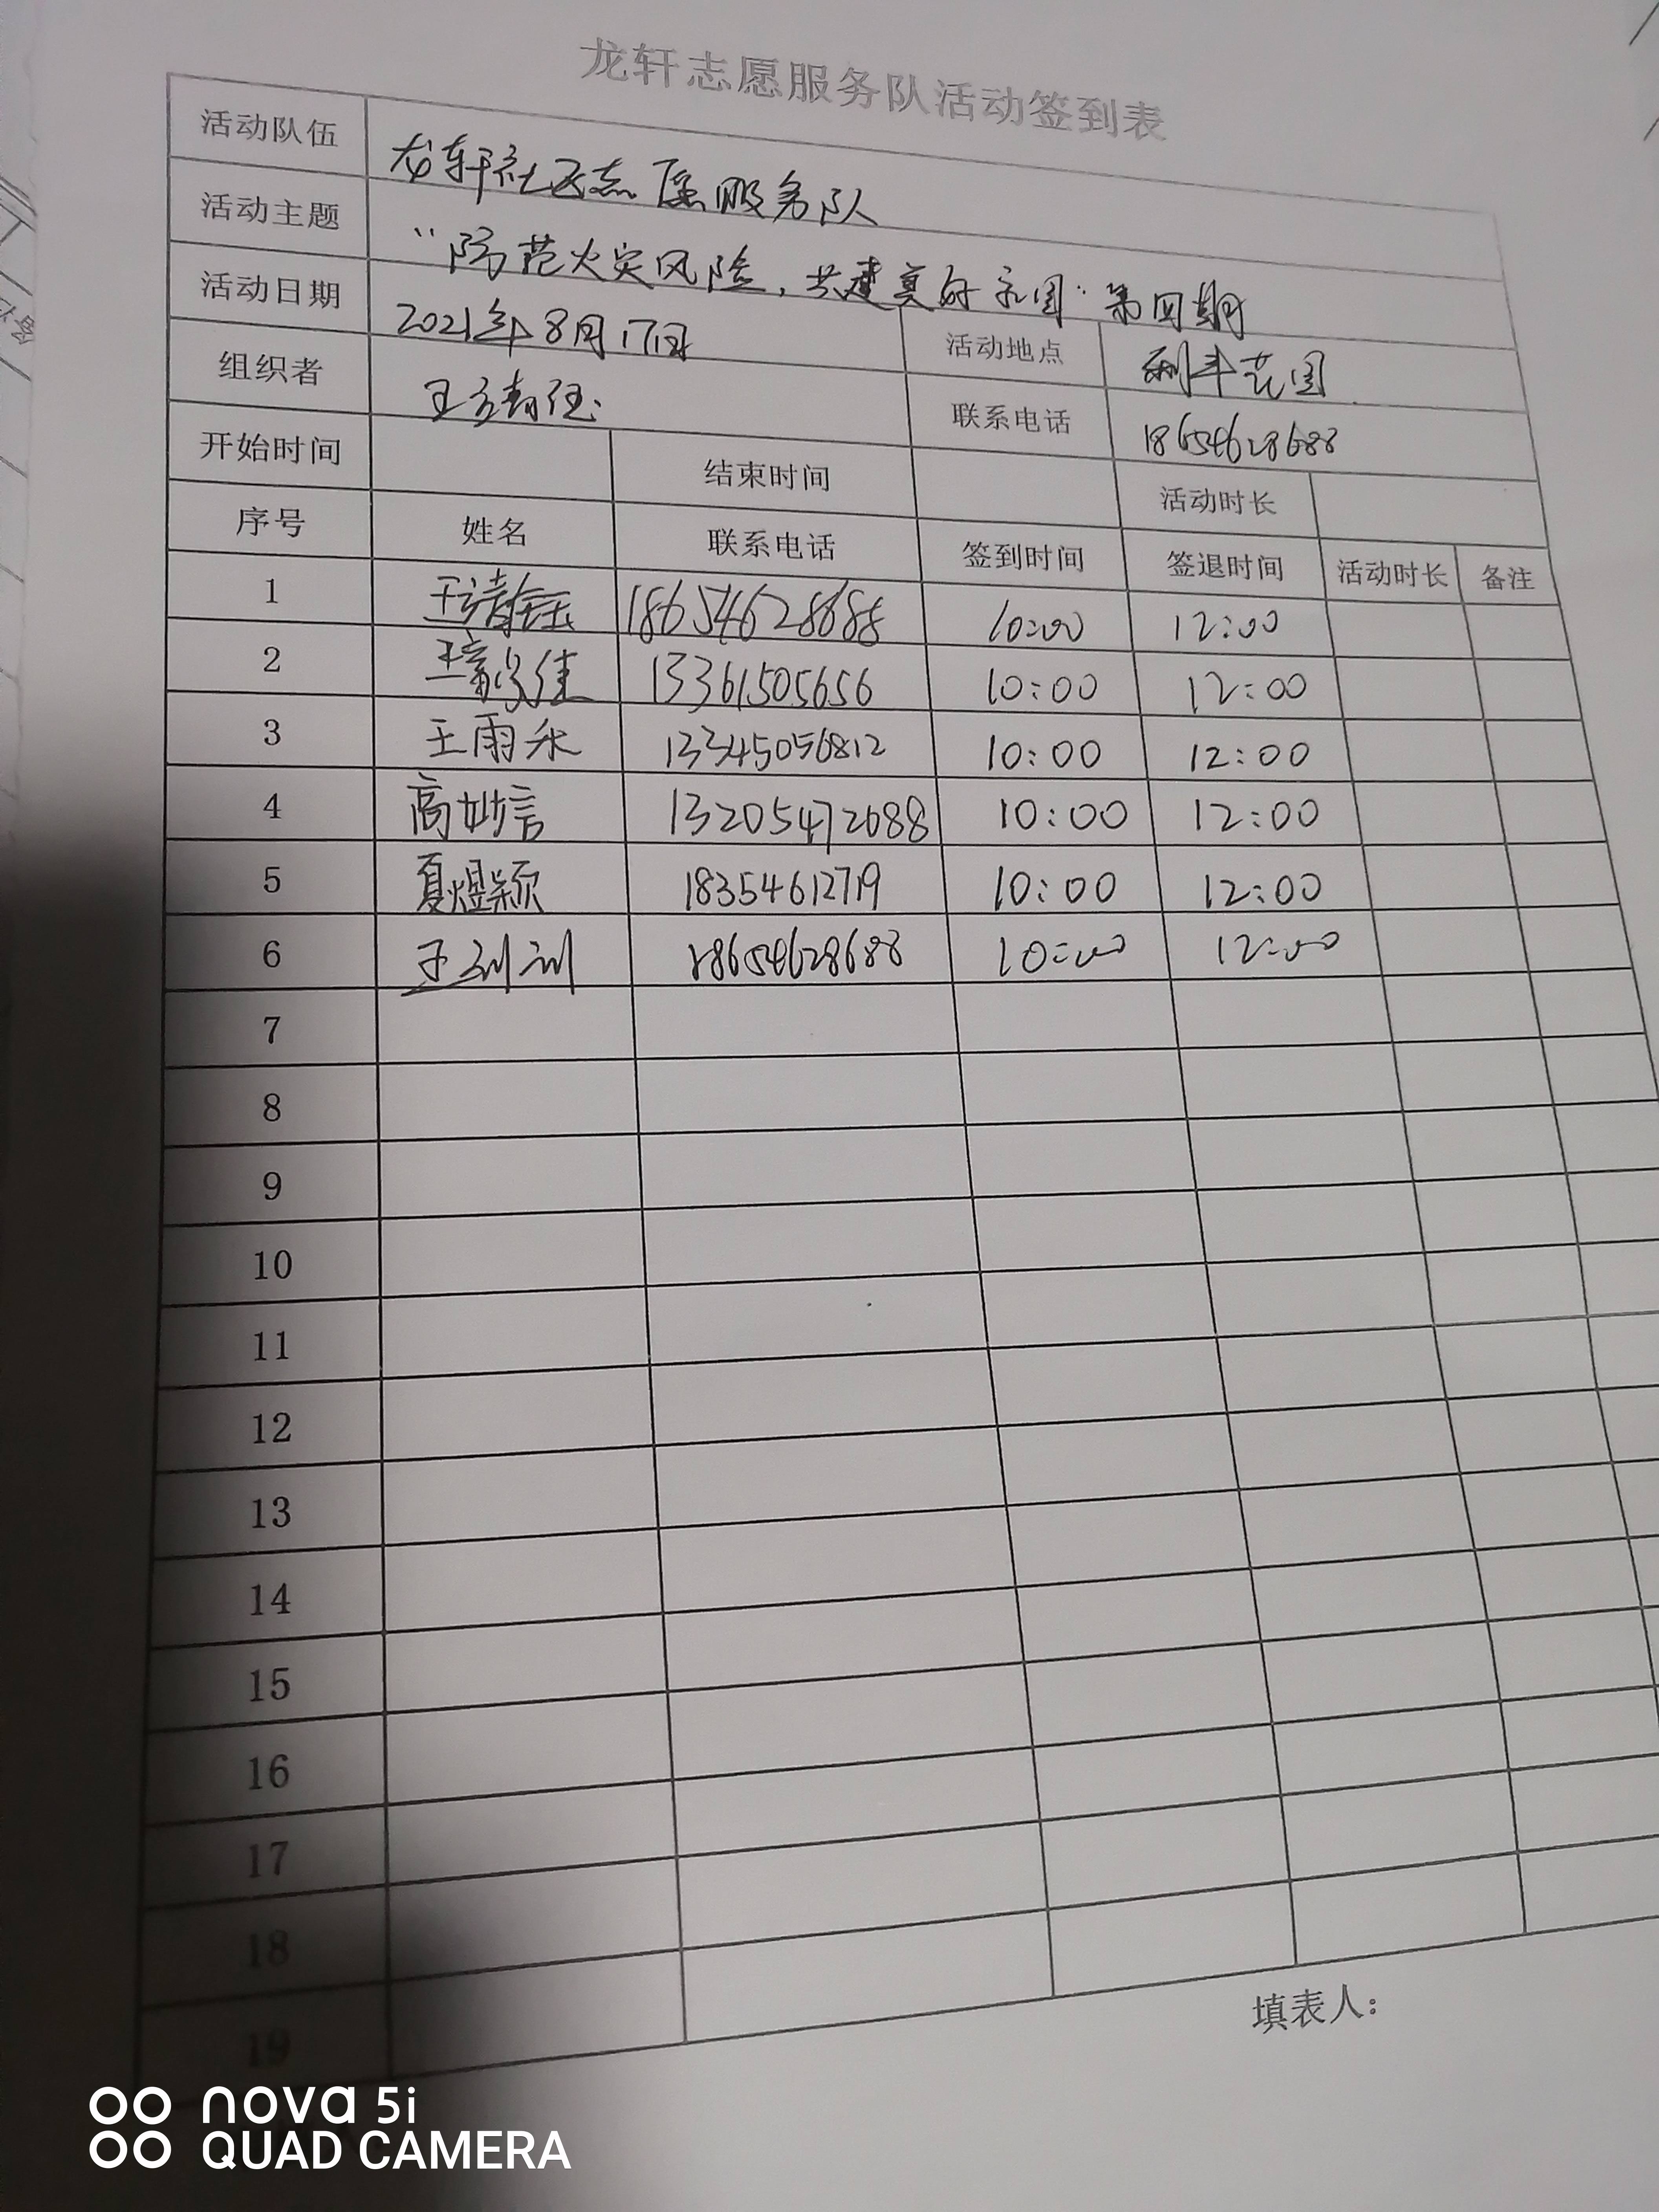 龙轩志愿服务队活动签到表
活动队伍 龙轩社区志愿服务队
活动主题 “防范火灾风险，共建美好家园”第四期
活动日期 2021年8月17日 活动地点 花园
组织者 王 联系电话 18654628688
开始时间 结束时间 活动时长
序号 姓名 联系电话 签到时间 签退时间 活动时长 备注
1 王诗钰 18654628688 10:00 12:00
2 王 佳 13361505656 10:00 12:00
3 王雨禾 13345056812 10:00 12:00
4 高妙言 13205472688 10:00 12:00
5 夏煜颖 18354612719 10:00 12:00
6 王 18654628688 10:00 12:00
7
8
9
10
11
12
13
14
15
16
17
18
19
填表人：
nova 5i
QUAD CAMERA